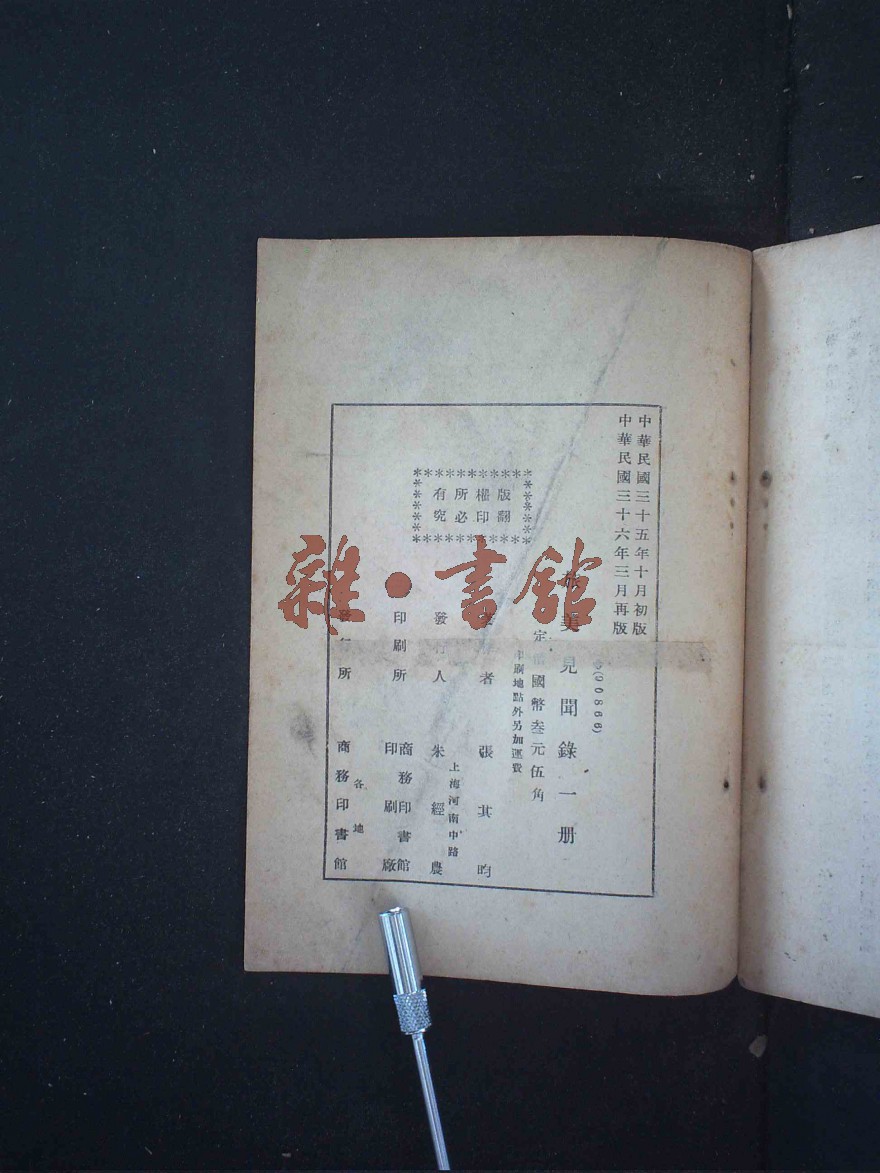 中華民國三十五年十月初版
中華民國三十六年三月再版
(90866)
旅美見聞錄一册
定價國幣叁元伍角
印刷地點外另加運費
版權所有
翻印必究
著作者 張其昀
上海河南中路
發行人 朱經農
印刷所 商務印書館
印刷廠
各地
發行所 商務印書館
雜·書館